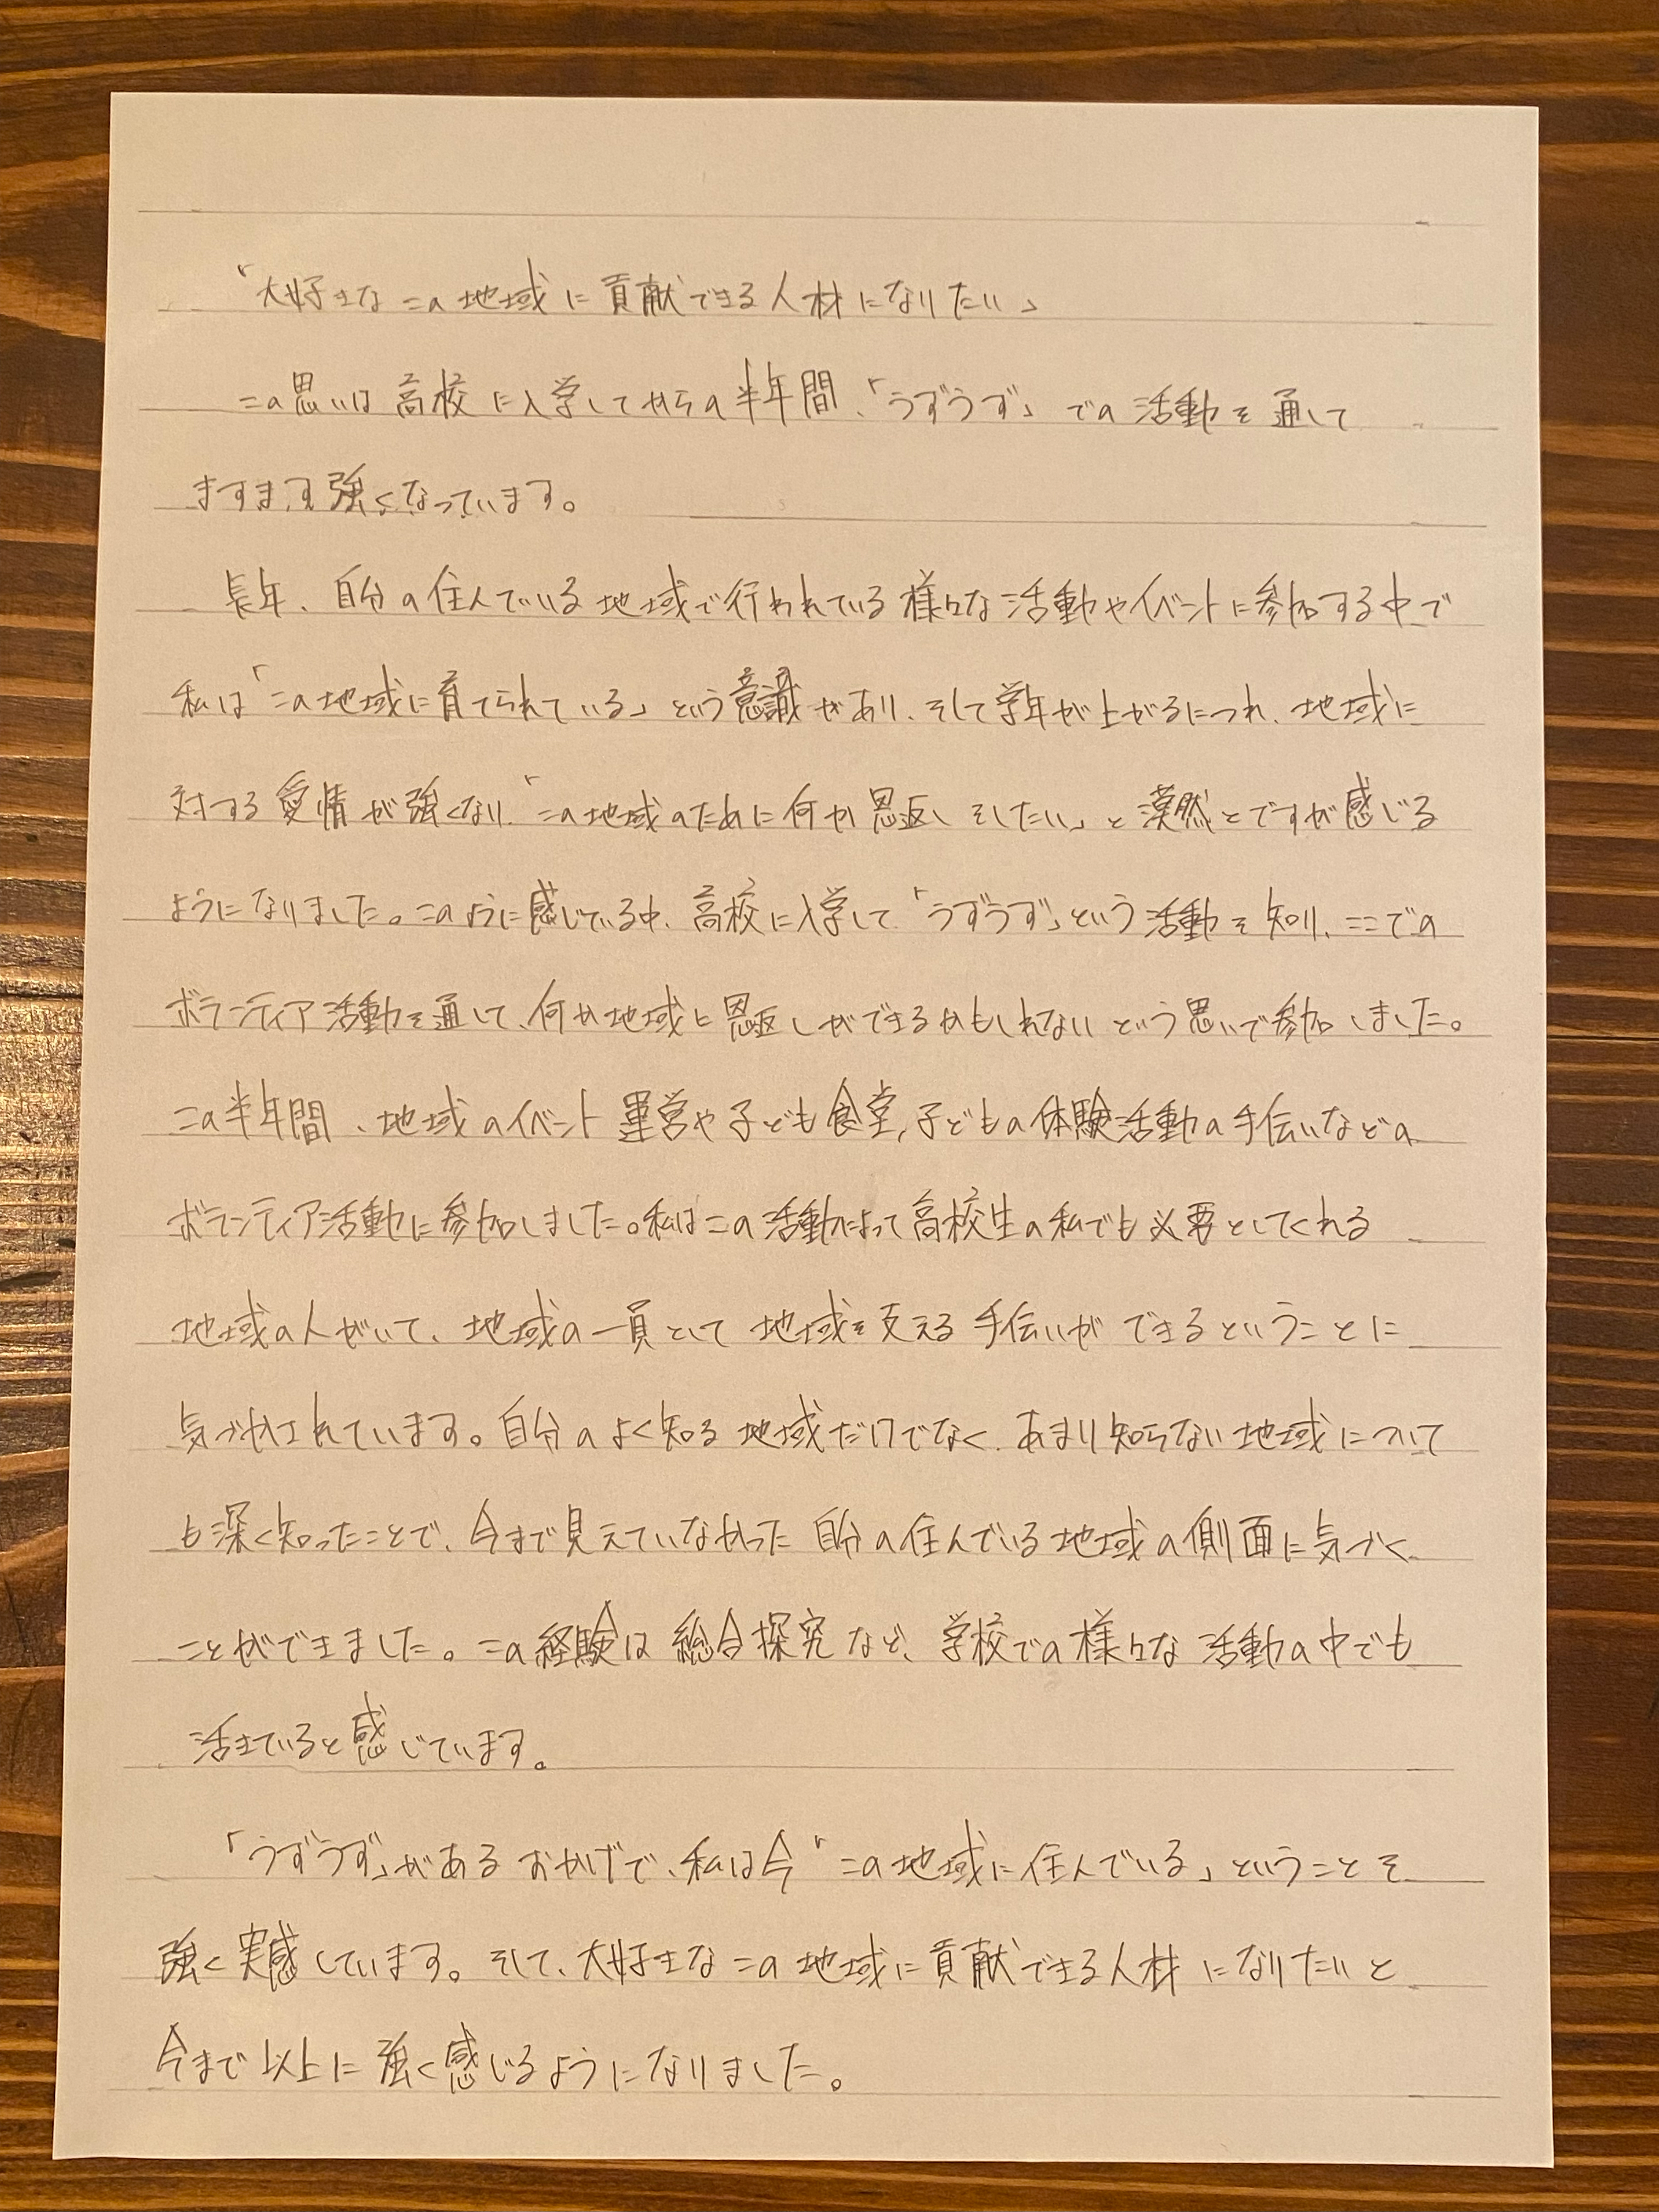 「大好きなこの地域に貢献できる人材になりたい」
この思いは高校に入学してからの半年間、「うずうず」での活動を通して
ますます強くなっています。
長年、自分の住んでいる地域で行われている様々な活動やイベントに参加する中で
私は「この地域に育てられている」という意識があり、そして学年が上がるにつれ、地域に
対する愛情が強くなり、「この地域のために何か恩返しをしたい」と漠然とですが感じる
ようになりました。このように感じている中、高校に入学して「うずうず」という活動を知り、ここでの
ボランティア活動を通して、何か地域に恩返しができるかもしれないという思いで参加しました。
この半年間、地域のイベント運営や子ども食堂、子どもの体験活動の手伝いなどの
ボランティア活動に参加しました。私はこの活動によって高校生の私でも必要としてくれる
地域の人がいて、地域の一員として地域を支える手伝いができるということに
気づかされています。自分のよく知る地域だけでなく、あまり知らない地域について
も深く知ったことで、今まで見えていなかった自分の住んでいる地域の側面に気づく
ことができました。この経験は総合探究など、学校での様々な活動の中でも
活きていると感じています。
「うずうず」があるおかげで、私は今「この地域に住んでいる」ということを
強く実感しています。そして、大好きなこの地域に貢献できる人材になりたいと
今まで以上に強く感じるようになりました。